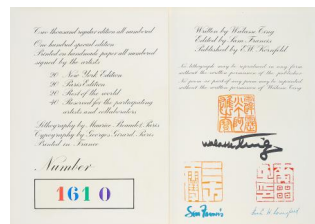 One thousand regular edition all numbered
One hundred special edition
Printed on handmade paper all numbered
signed by the artists
20 New York Edition
20 Paris Edition
20 Rest of the world
40 Reserved for the participating
artists and collaborators
Lithography by Maurice Beaudet, Paris
Typography by Georges Girard, Paris
Printed in France
Number
1610
Written by Walasse Ting
Edited by Sam Francis
Published by E.W. Kornfeld
No lithograph may be reproduced in any form
without the written permission of the publisher
No poem or part of any poem may be reprinted
without the written permission of Walasse Ting
walasse Ting
Sam Francis